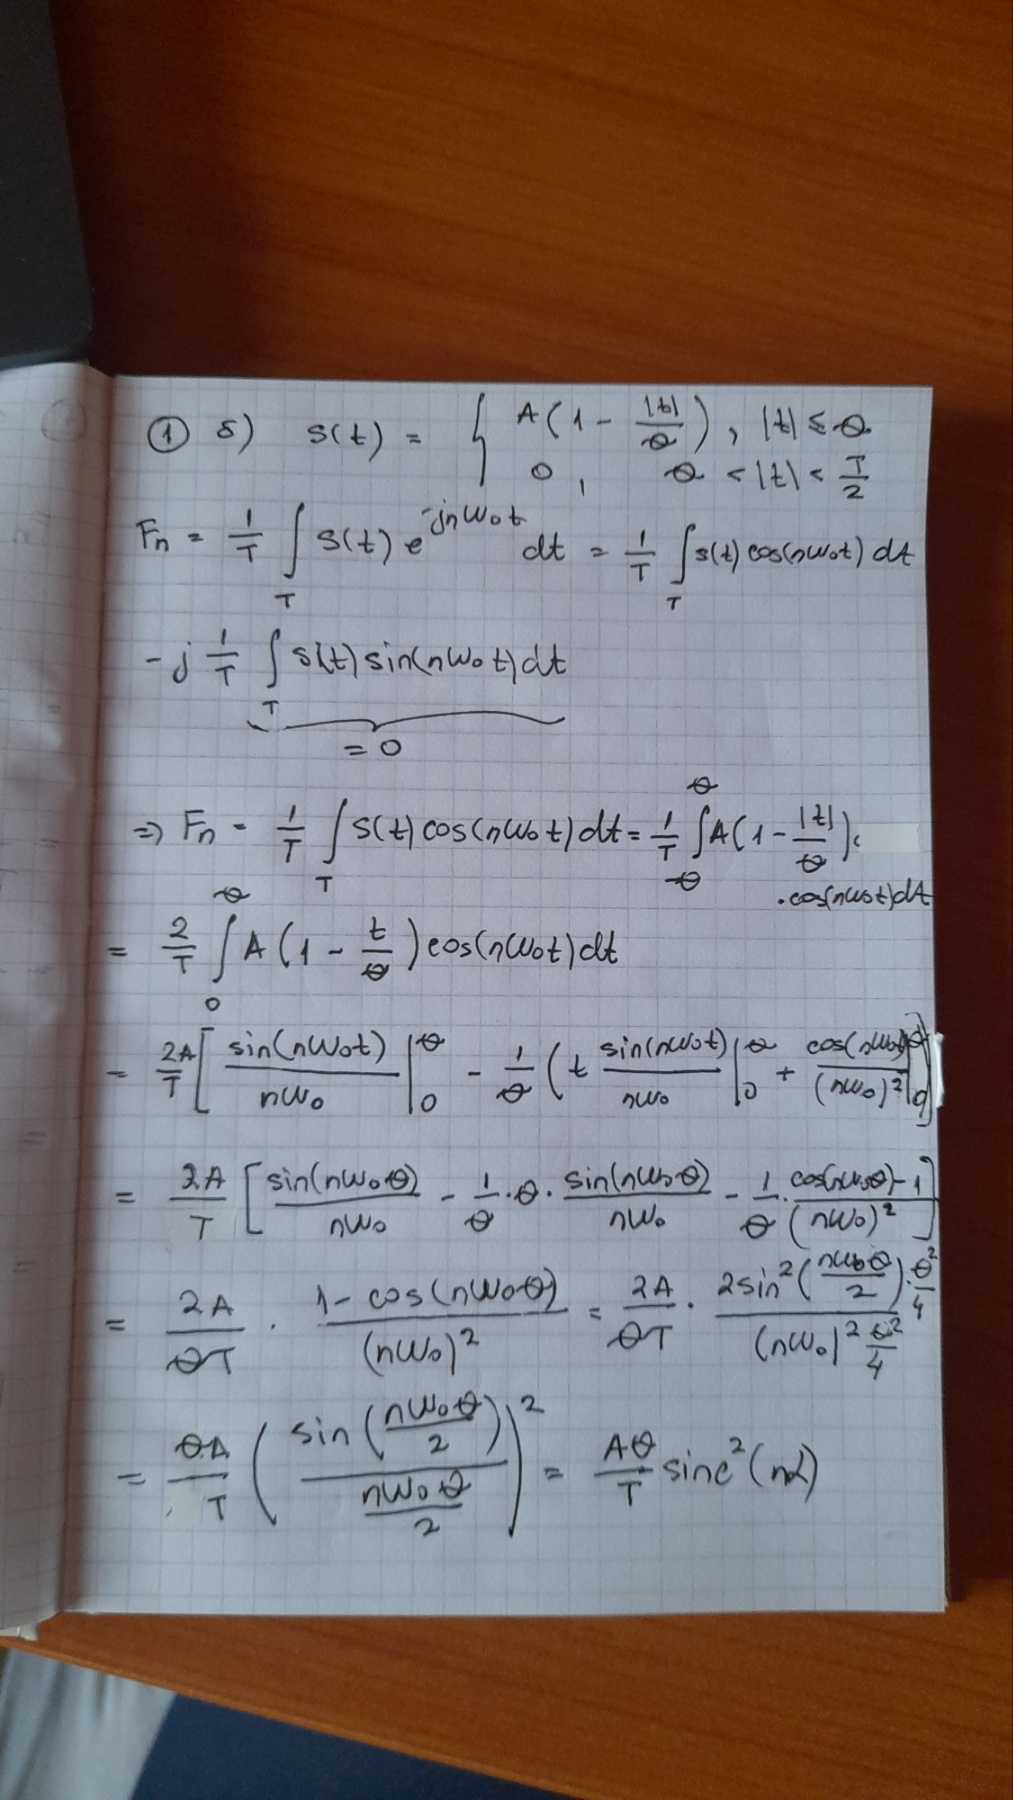 ① δ) s(t) = { A(1 - |t|/θ), |t| ≤ θ
0, θ < |t| < T/2
Fn = 1/T ∫_T s(t) e^{-jnω₀t} dt = 1/T ∫_T s(t) cos(nω₀t) dt
-j 1/T ∫_T s(t) sin(nω₀t) dt
= 0
⇒ Fn = 1/T ∫_T s(t) cos(nω₀t) dt = 1/T ∫_{-θ}^{θ} A(1 - |t|/θ) ·
· cos(nω₀t) dt
= 2/T ∫_0^θ A(1 - t/θ) cos(nω₀t) dt
= 2A/T [ sin(nω₀t)/nω₀ |_0^θ - 1/θ (t sin(nω₀t)/nω₀ |_0^θ + cos(nω₀t)/(nω₀)² |_0^θ) ]
= 2A/T [ sin(nω₀θ)/nω₀ - 1/θ · θ · sin(nω₀θ)/nω₀ - 1/θ · (cos(nω₀θ) - 1)/(nω₀)² ]
= 2A/θT · (1 - cos(nω₀θ))/(nω₀)² = 2A/θT · (2sin²(nω₀θ/2) · θ²/4)/((nω₀)² θ²/4)
= θA/T (sin(nω₀θ/2)/(nω₀θ/2))² = Aθ/T sinc²(nα)